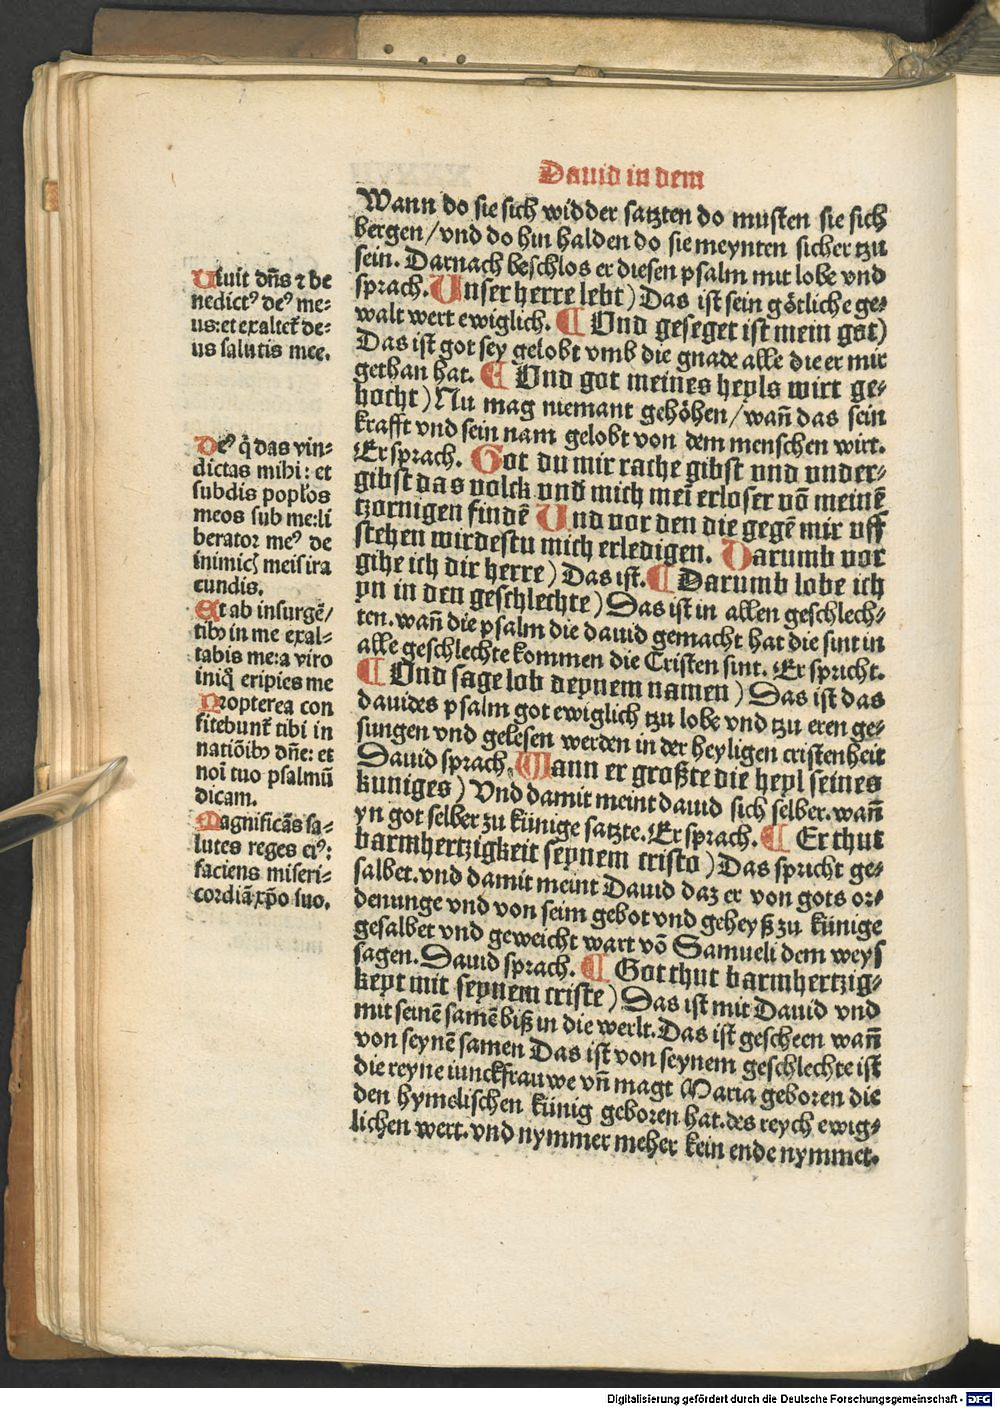 Dauid in dem
Wann do sie sich widder satzten do musten sie sich
bergen/vnd do hin halden do sie meynten sicher tzu
sein. Darnach beschlos er diesen psalm mit lobe vnd
sprach. Unser herre lebt) Das ist sein götliche ge⸗
walt wert ewiglich. ¶ Und geseget ist mein got)
Das ist got sey gelobt vmb die gnade alle die er mir
gethan hat. ¶ Und got meines heyls wirt ge⸗
hocht) Nu mag niemant gehöhen/wañ das sein
krafft vnd sein nam gelobt von dem menschen wirt.
Er sprach. Got du mir rache gibst vnd vnder⸗
gibst das volck vnd mich mei erloser vō meinē
tzornigen findē Und vor den die gegē mir uff
stehen wirdestu mich erledigen. Darumb vor
gihe ich dir herre) Das ist. ¶ Darumb lobe ich
yn in den geschlechte) Das ist in allen geschlech⸗
ten. wañ die psalm die dauid gemacht hat die sint in
alle geschlechte kommen die Cristen sint. Er spricht.
¶ Und sage lob deynem namen) Das ist das
dauides psalm got ewiglich tzu lobe vnd tzu eren ge⸗
sungen vnd gelesen werden in der heyligen cristenheit
Dauid sprach. Wann er großte die heyl seines
kuniges) Vnd damit meint dauid sich selber. wañ
yn got selber zu künige satzte. Er sprach. ¶ Er thut
barmhertzigkeit seynem cristo) Das spricht ge⸗
salbet. vnd damit meint Dauid daz er von gots or⸗
denunge vnd von seim gebot vnd geheyß zu künige
gesalbet vnd geweicht wart vō Samueli dem weys
sagen. Dauid sprach. ¶ Got thut barmhertzig⸗
keyt mit seynem criste) Das ist mit Dauid vnd
mit seinē samē biß in die werlt. Das ist gescheen wañ
von seynē samen Das ist von seynem geschlechte ist
die reyne iunckfrauwe vñ magt Maria geboren die
den hymelischen künig geboren hat. des reych ewig⸗
lichen wert. vnd nymmer meher kein ende nymmet.
Uiuit dñs ⁊ be
nedictꝰ deꝰ me⸗
us: et exaltet̃ de⸗
us salutis mee.
Deꝰ q̄ das vin⸗
dictas mihi: et
subdis popl'os
meos sub me: li
berator meꝰ de
inimicꝭ meis ira
cundis.
Et ab insurgē/
tibꝰ in me exal⸗
tabis me: a viro
iniq̄ eripies me
Propterea con
fitebunt̃ tibi in
natiōibꝰ dñe: et
noĩ tuo psalmū
dicam.
Magnificās sa⸗
lutes reges eiꝰ:
faciens miseri⸗
cordiā xp̄o suo.
Digitalisierung gefördert durch die Deutsche Forschungsgemeinschaft - DFG